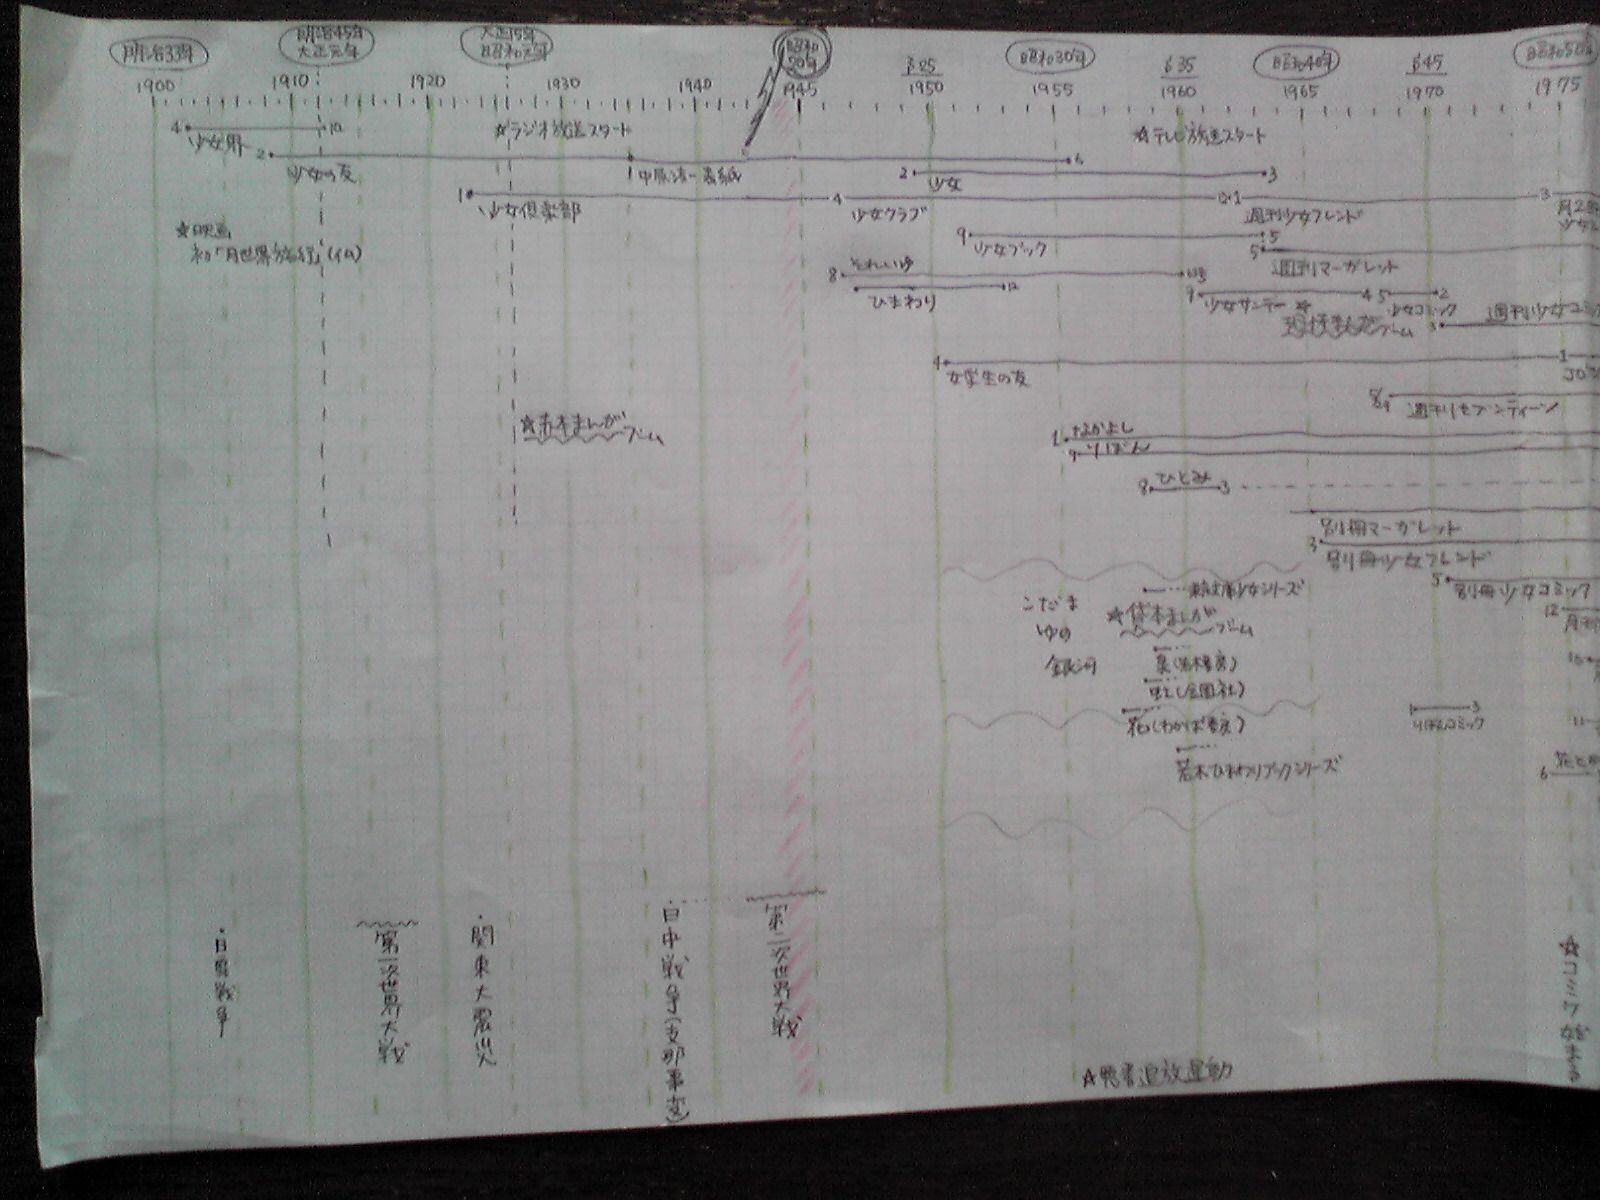 明治33年
明治45年
大正元年
大正15年
昭和元年
昭和
20年
S25
昭和30年
S35
昭和40年
S45
昭和50年
1900
1910
1920
1930
1940
1945
1950
1955
1960
1965
1970
1975
4 少女界 10
☆ラジオ放送スタート
☆テレビ放送スタート
2 少女の友 6
中原淳一表紙
2 少女 3
1 少女倶楽部
4 少女クラブ 12
1 週刊少女フレンド 3
☆映画
初「月世界旅行」(仏)
9 少女ブック 5
5 週刊マーガレット
8 それいゆ
ひまわり 12
9 少女サンデー 4
5 少女コミック 2
3 週刊少女コミ
ブーム
4 女学生の友 1
週刊セブンティーン
☆赤本まんが
ブーム
1 なかよし
9 りぼん
8 ひとみ 3
別冊マーガレット
3 別冊少女フレンド
5 別冊少女コミック
12 月刊
こだま
ゆめ
銀河
☆貸本まんが
ブーム
虹(金園社)
花(わかば書房)
りぼんコミック 3
若木ひまわりブックシリーズ
6 花と
・日露戦争
第一次世界大戦
・関東大震災
・日中戦争(支那事変)
第二次世界大戦
☆悪書追放運動
☆コミケ始まる